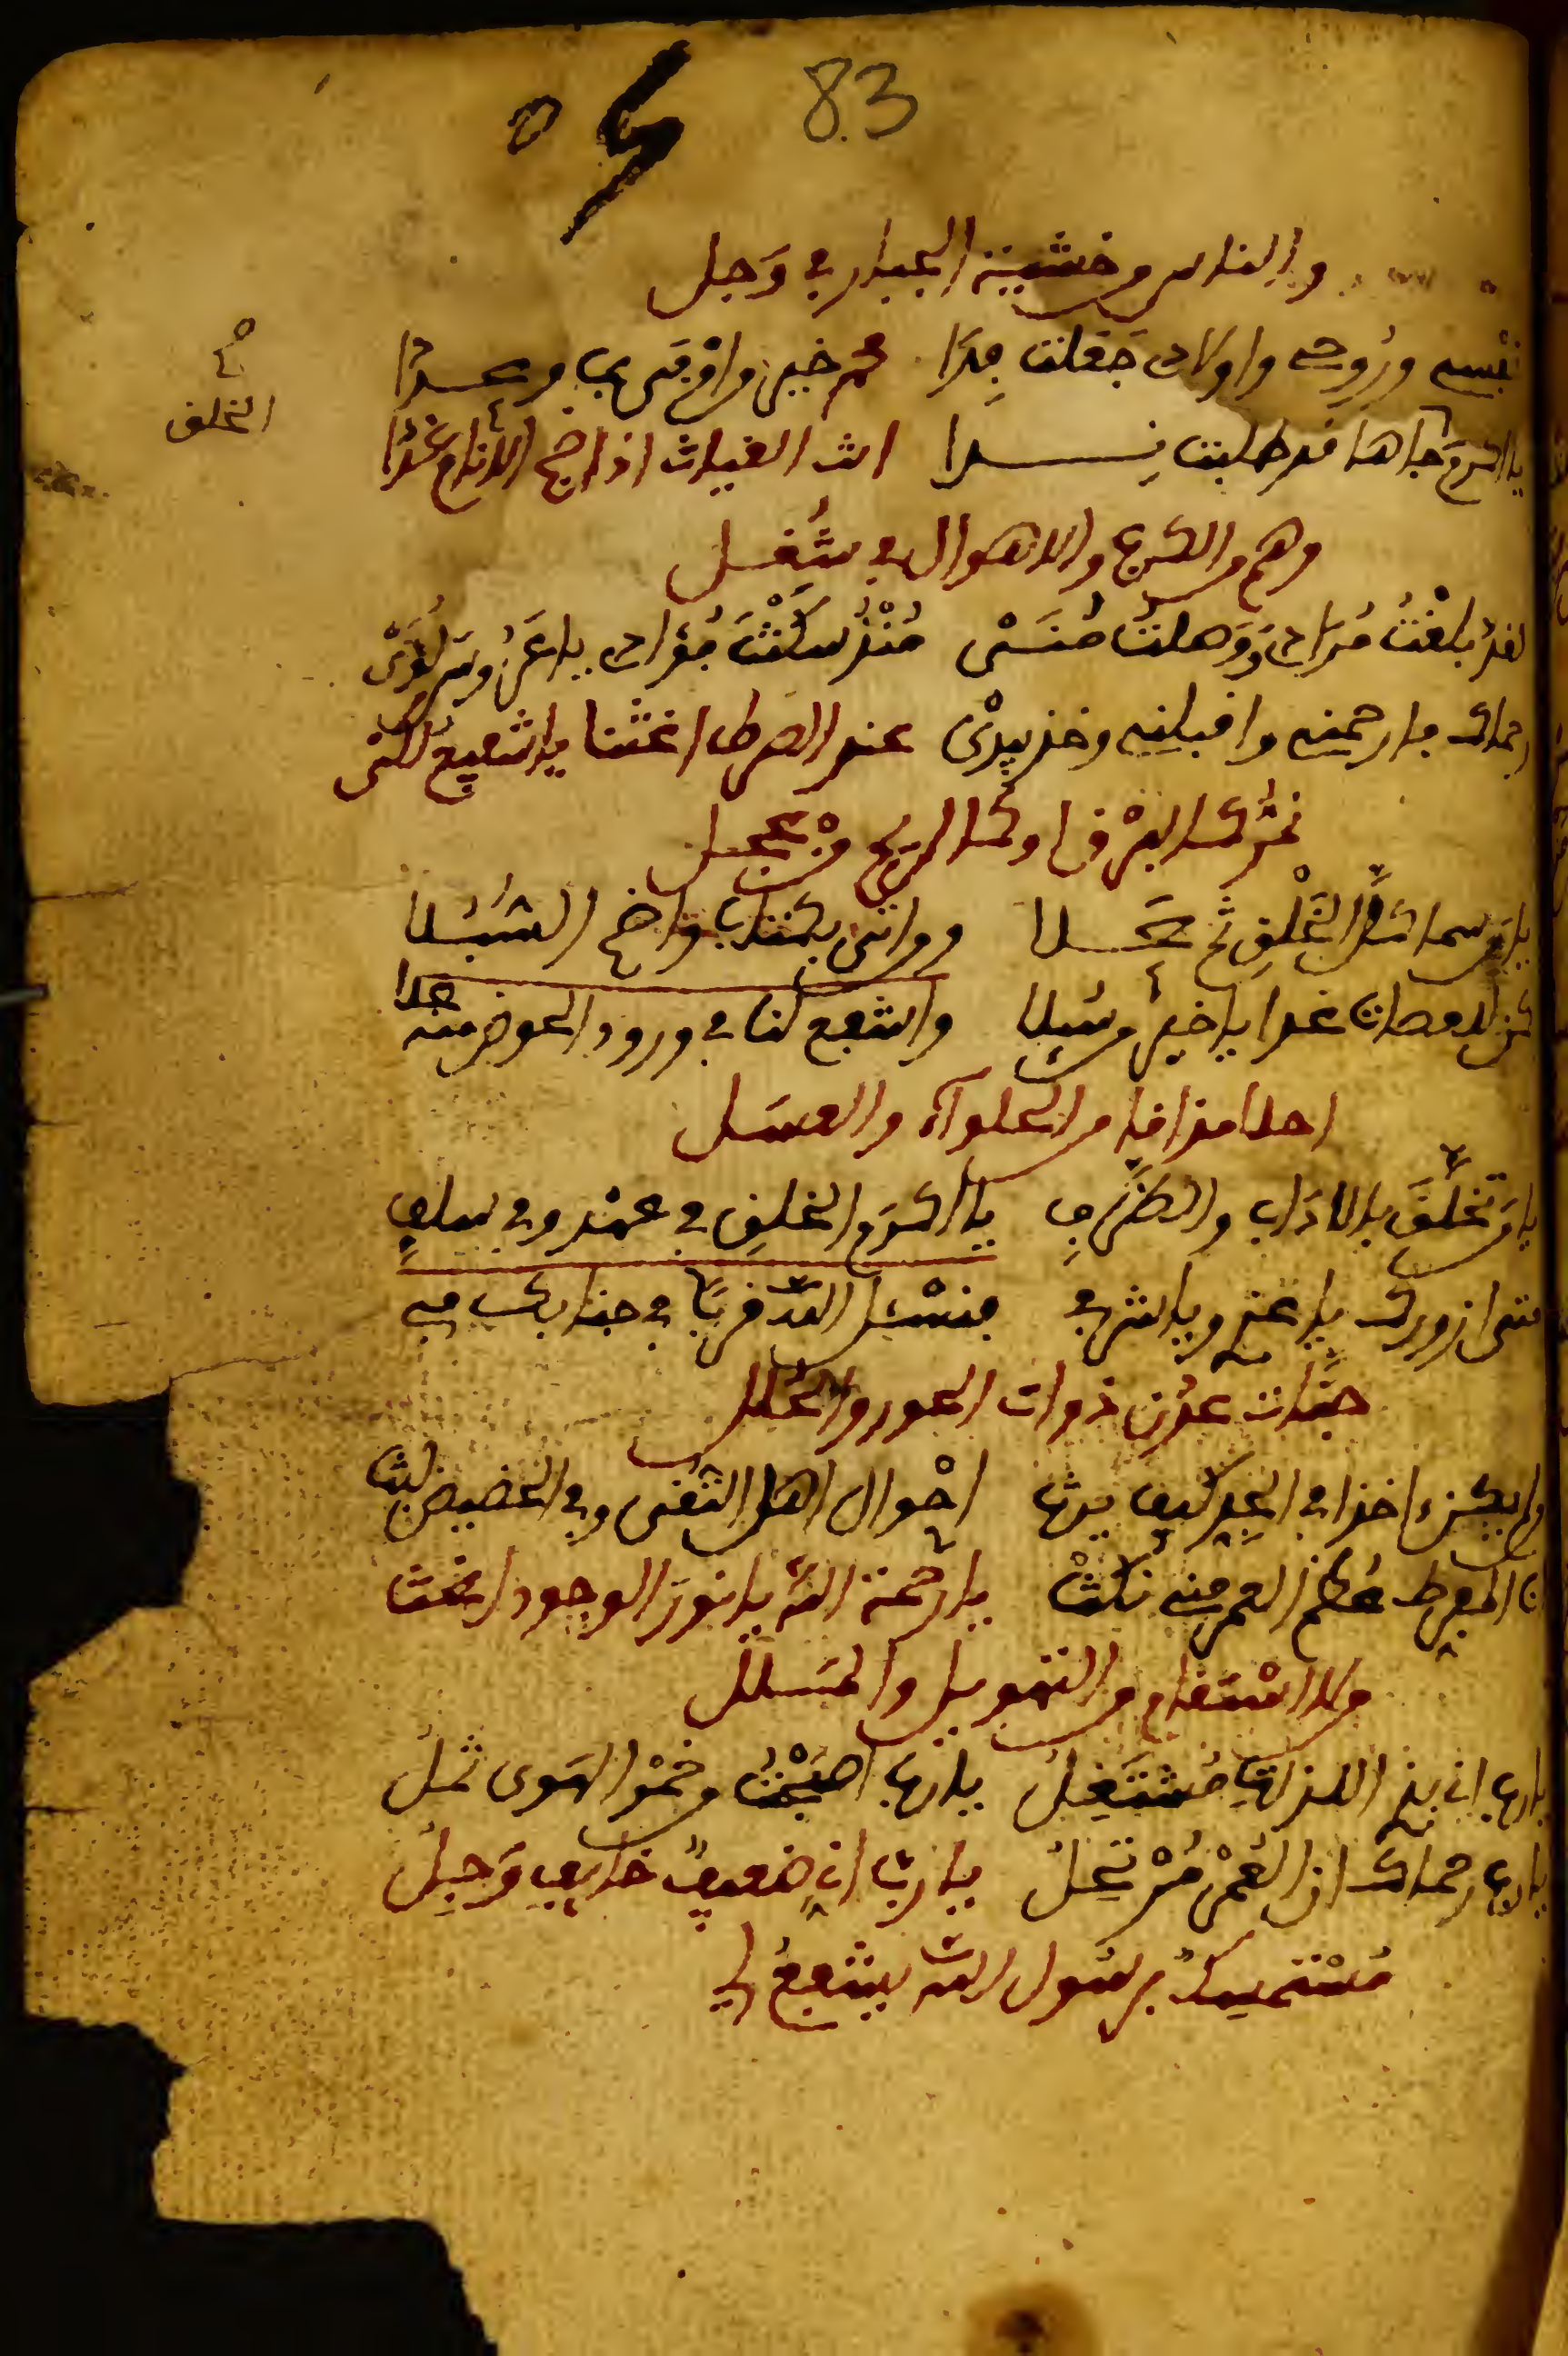 83
والناس من خشية الجبار في وجل
نفسي وروحي واولادي جعلت فدا محمد خير من اوفى بما وعدا
الخلق
يا اكرم جاها قد طلبت ندا انت الغياث اذا ضج الانام غدا
وهم من الكرب والاهوال في شغل
لقد بلغت مرادي ووهلت مني منذ سكنت فؤادي يا عز من
رحماك فارحمني واقبلني وخذ بيدي عند الصراط اغثنا يا شفيع لكي
نمر كالبرق او كالريح من عجل
يا من سما الخلق ثم علا ومن اتى بكتاب واضح السبلا
كن للعصات غدا يا خير من سئلا واشفع لنا في ورود الحوض منه علا
احلا مذاقا من الحلوآء والعسل
يا من تخلق بالاداب والظرف يا اكرم الخلق في عهد وفي سلف
متى ازورك يا عزي ويا شرفي فنسئل الله قربا في جنابك في
جنات عدن ذوات الحور والحلل
ولم يكن اخذا في الجد كيف يرثها احوال اهل التقى وفي الحضيض لبث
ان المفرط علم العمر فيه نكث يا رحمة الله يا نور الوجود اغث
من الانتقام والتهويل والملل
يا رب اني بذا اللذات مشتغل يا رب اصبحت من خمر الهوى ثمل
يا رب رحماك اذ العمر مرتحل يا رب اني ضعيف خايف وجل
مستمسك برسول الله يشفع لي